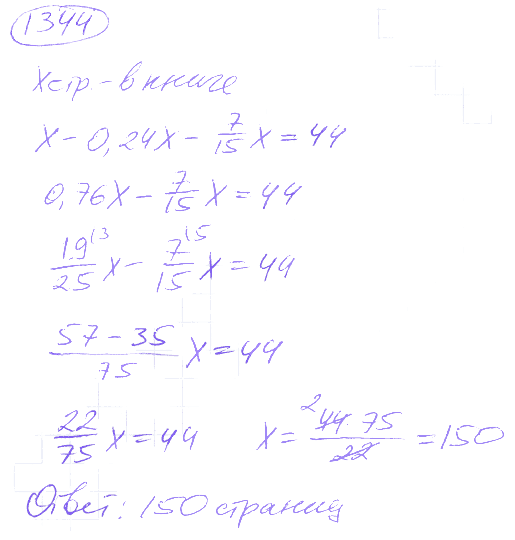 1344
Xстр. - в книге
X - 0,24X - 7/15 X = 44
0,76X - 7/15 X = 44
19/25 ^(3 X - 7/15 ^(5 X = 44
57 - 35/75 X = 44
22/75 X = 44   X = ²44 · 75/22 = 150
Ответ: 150 страниц